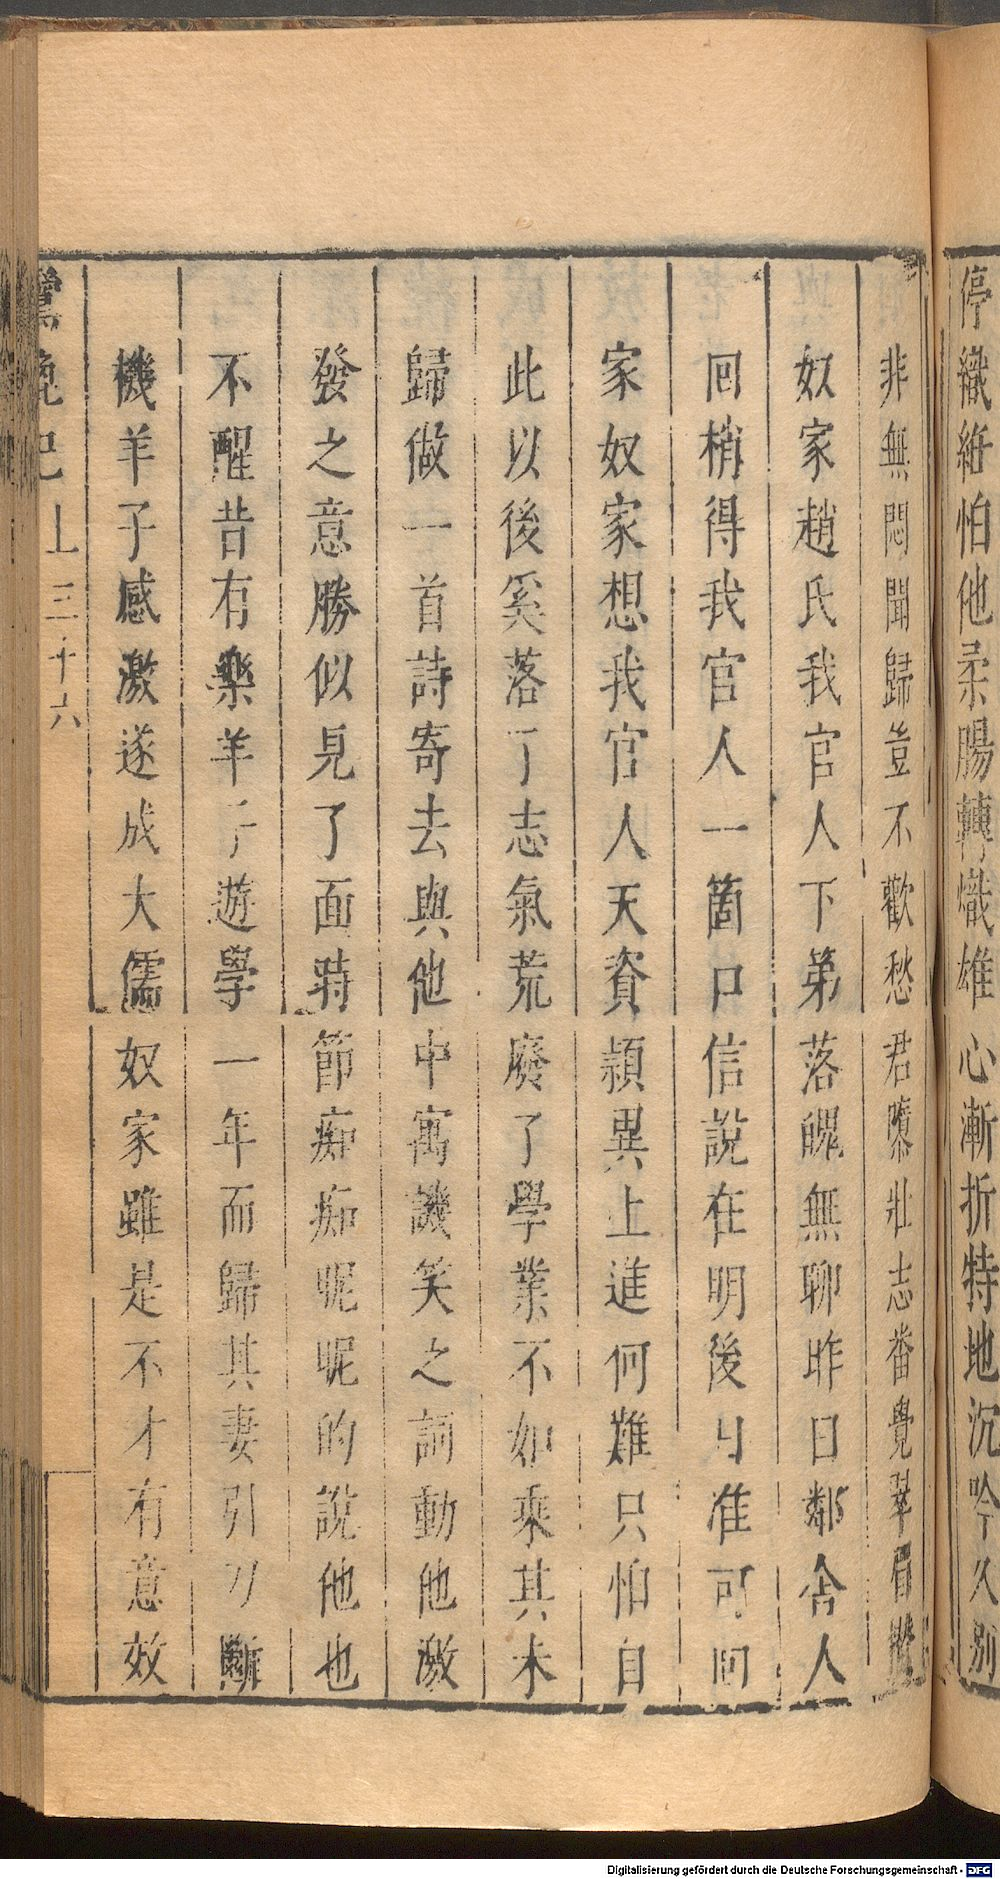 停織絍怕他柔腸轉熾雄心漸折特地沉吟久別
非無悶聞歸豈不歡愁君隳壯志番覺翠眉攢
奴家趙氏我官人下第落魄無聊昨日鄰舍人
回梢得我官人一箇口信說在明後日准可回
家奴家想我官人天資頴異上進何難只怕自
此以後奚落了志氣荒廢了學業不如乘其未
歸做一首詩寄去與他中寓譏笑之詞動他激
發之意勝似見了面時節痴痴呢呢的說他也
不醒昔有樂羊子遊學一年而歸其妻引刀斷
機羊子感激遂成大儒奴家雖是不才有意效
鴛鴦記上 三十六
Digitalisierung gefördert durch die Deutsche Forschungsgemeinschaft - DFG